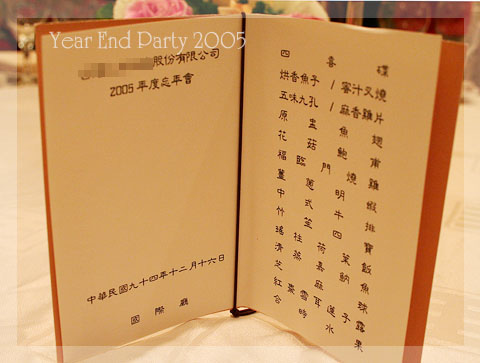 Year End Party 2005
股份有限公司
2005年度忘年會
中華民國九十四年十二月十六日
國際廳
四喜碟
烘香魚子 / 蜜汁叉燒
五味九孔 / 麻香雞片
原盅魚翅
花菇鮑甫
福臨門燒雞
薑蔥明蝦
中式牛排
竹笙四寶
瑤柱荷葉飯
清蒸嘉納魚
芝麻球
紅棗雪耳蓮子露
合時水果